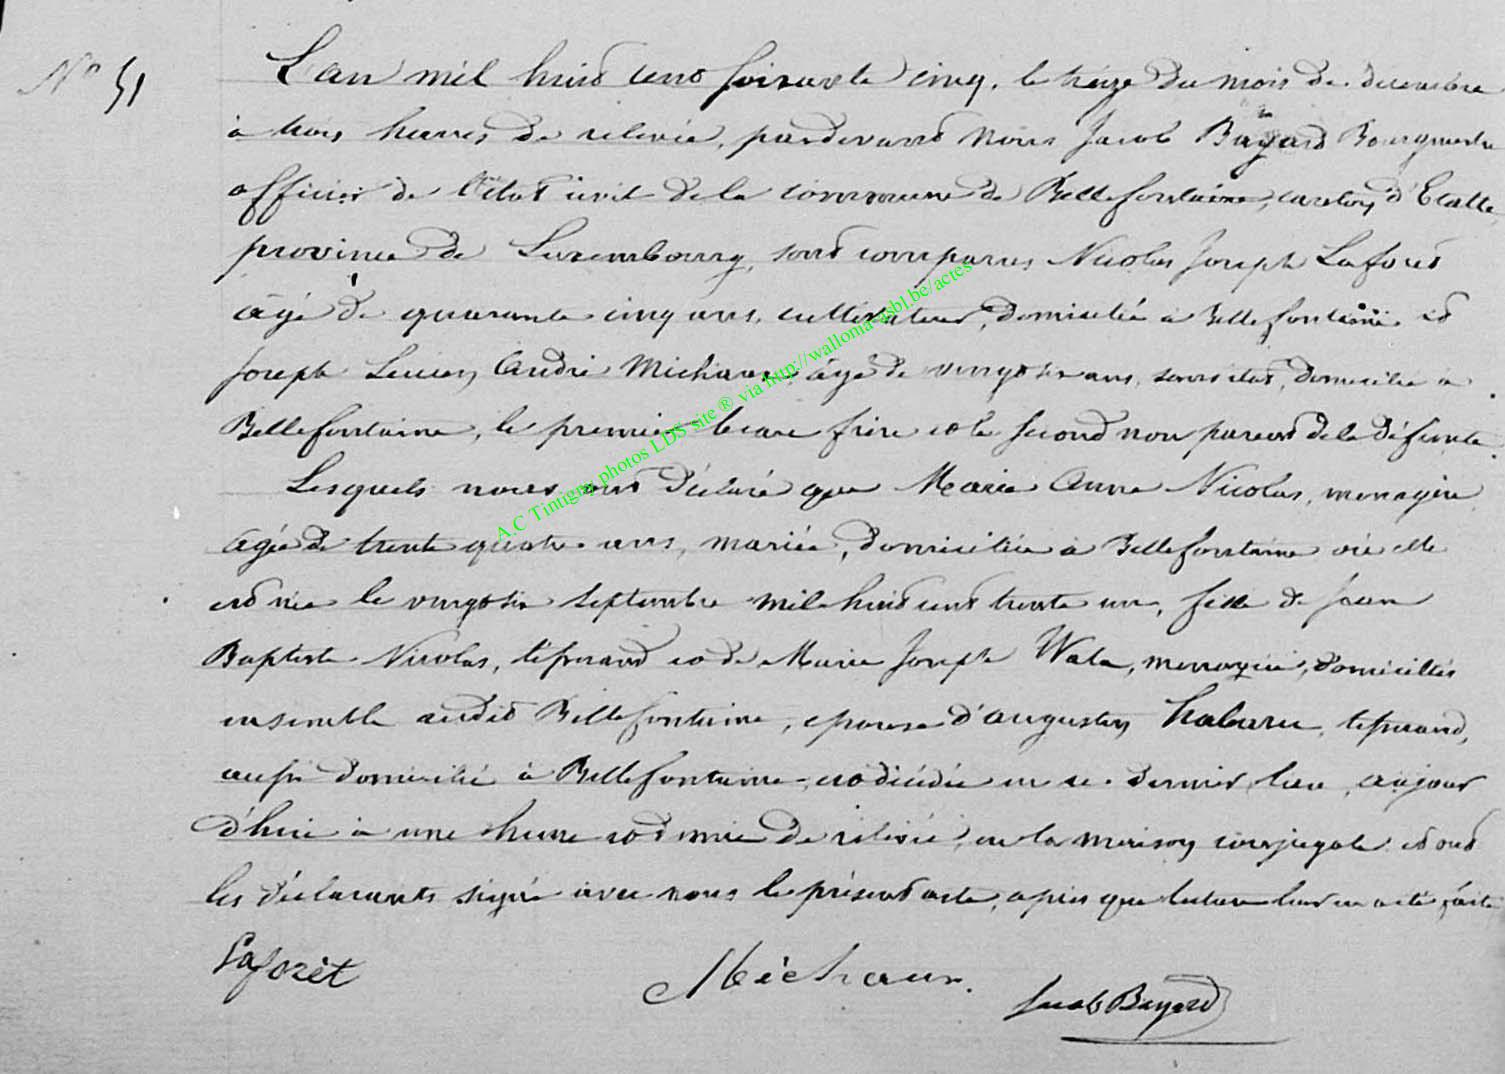 N° 51
L'an mil huit cent soixante cinq, le treize du mois de décembre
à trois heures de relevée, pardevant Nous Jacob Bayard Bourgmestre
officier de l'état civil de la commune de Bellefontaine, canton d'Etalle,
province de Luxembourg, sont comparus Nicolas Joseph Laforêt
âgé de quarante cinq ans, cultivateur, domicilié à Bellefontaine et
Joseph Lucien André Michaux âgé de vingt six ans, sans état, domicilié à
Bellefontaine, le premier beau frère et le second non parent de la défunte.
Lesquels nous ont déclaré que Marie Anne Nicolas, menagère
agée de trente quatre ans, mariée, domiciliée à Bellefontaine où elle
est née le vingt six septembre mil huit cent trente un, fille de Jean
Baptiste Nicolas, tisserand et de Marie Joseph Wala, menagère, domiciliés
ensemble audit Bellefontaine, epouse d'augustin habaru, tisserand,
aussi domicilié à Bellefontaine, est décédée en ce dernier lieu, aujour
d'hui à une heure et demie de relevée, en la maison conjugale et ont
les déclarants signé avec nous le présent acte, après que lecture leur en a été faite
Laforêt
Michaux.
Jacob Bayard
A.C Tintigny photos LDS site ® via http://walloma-asbl.be/actes